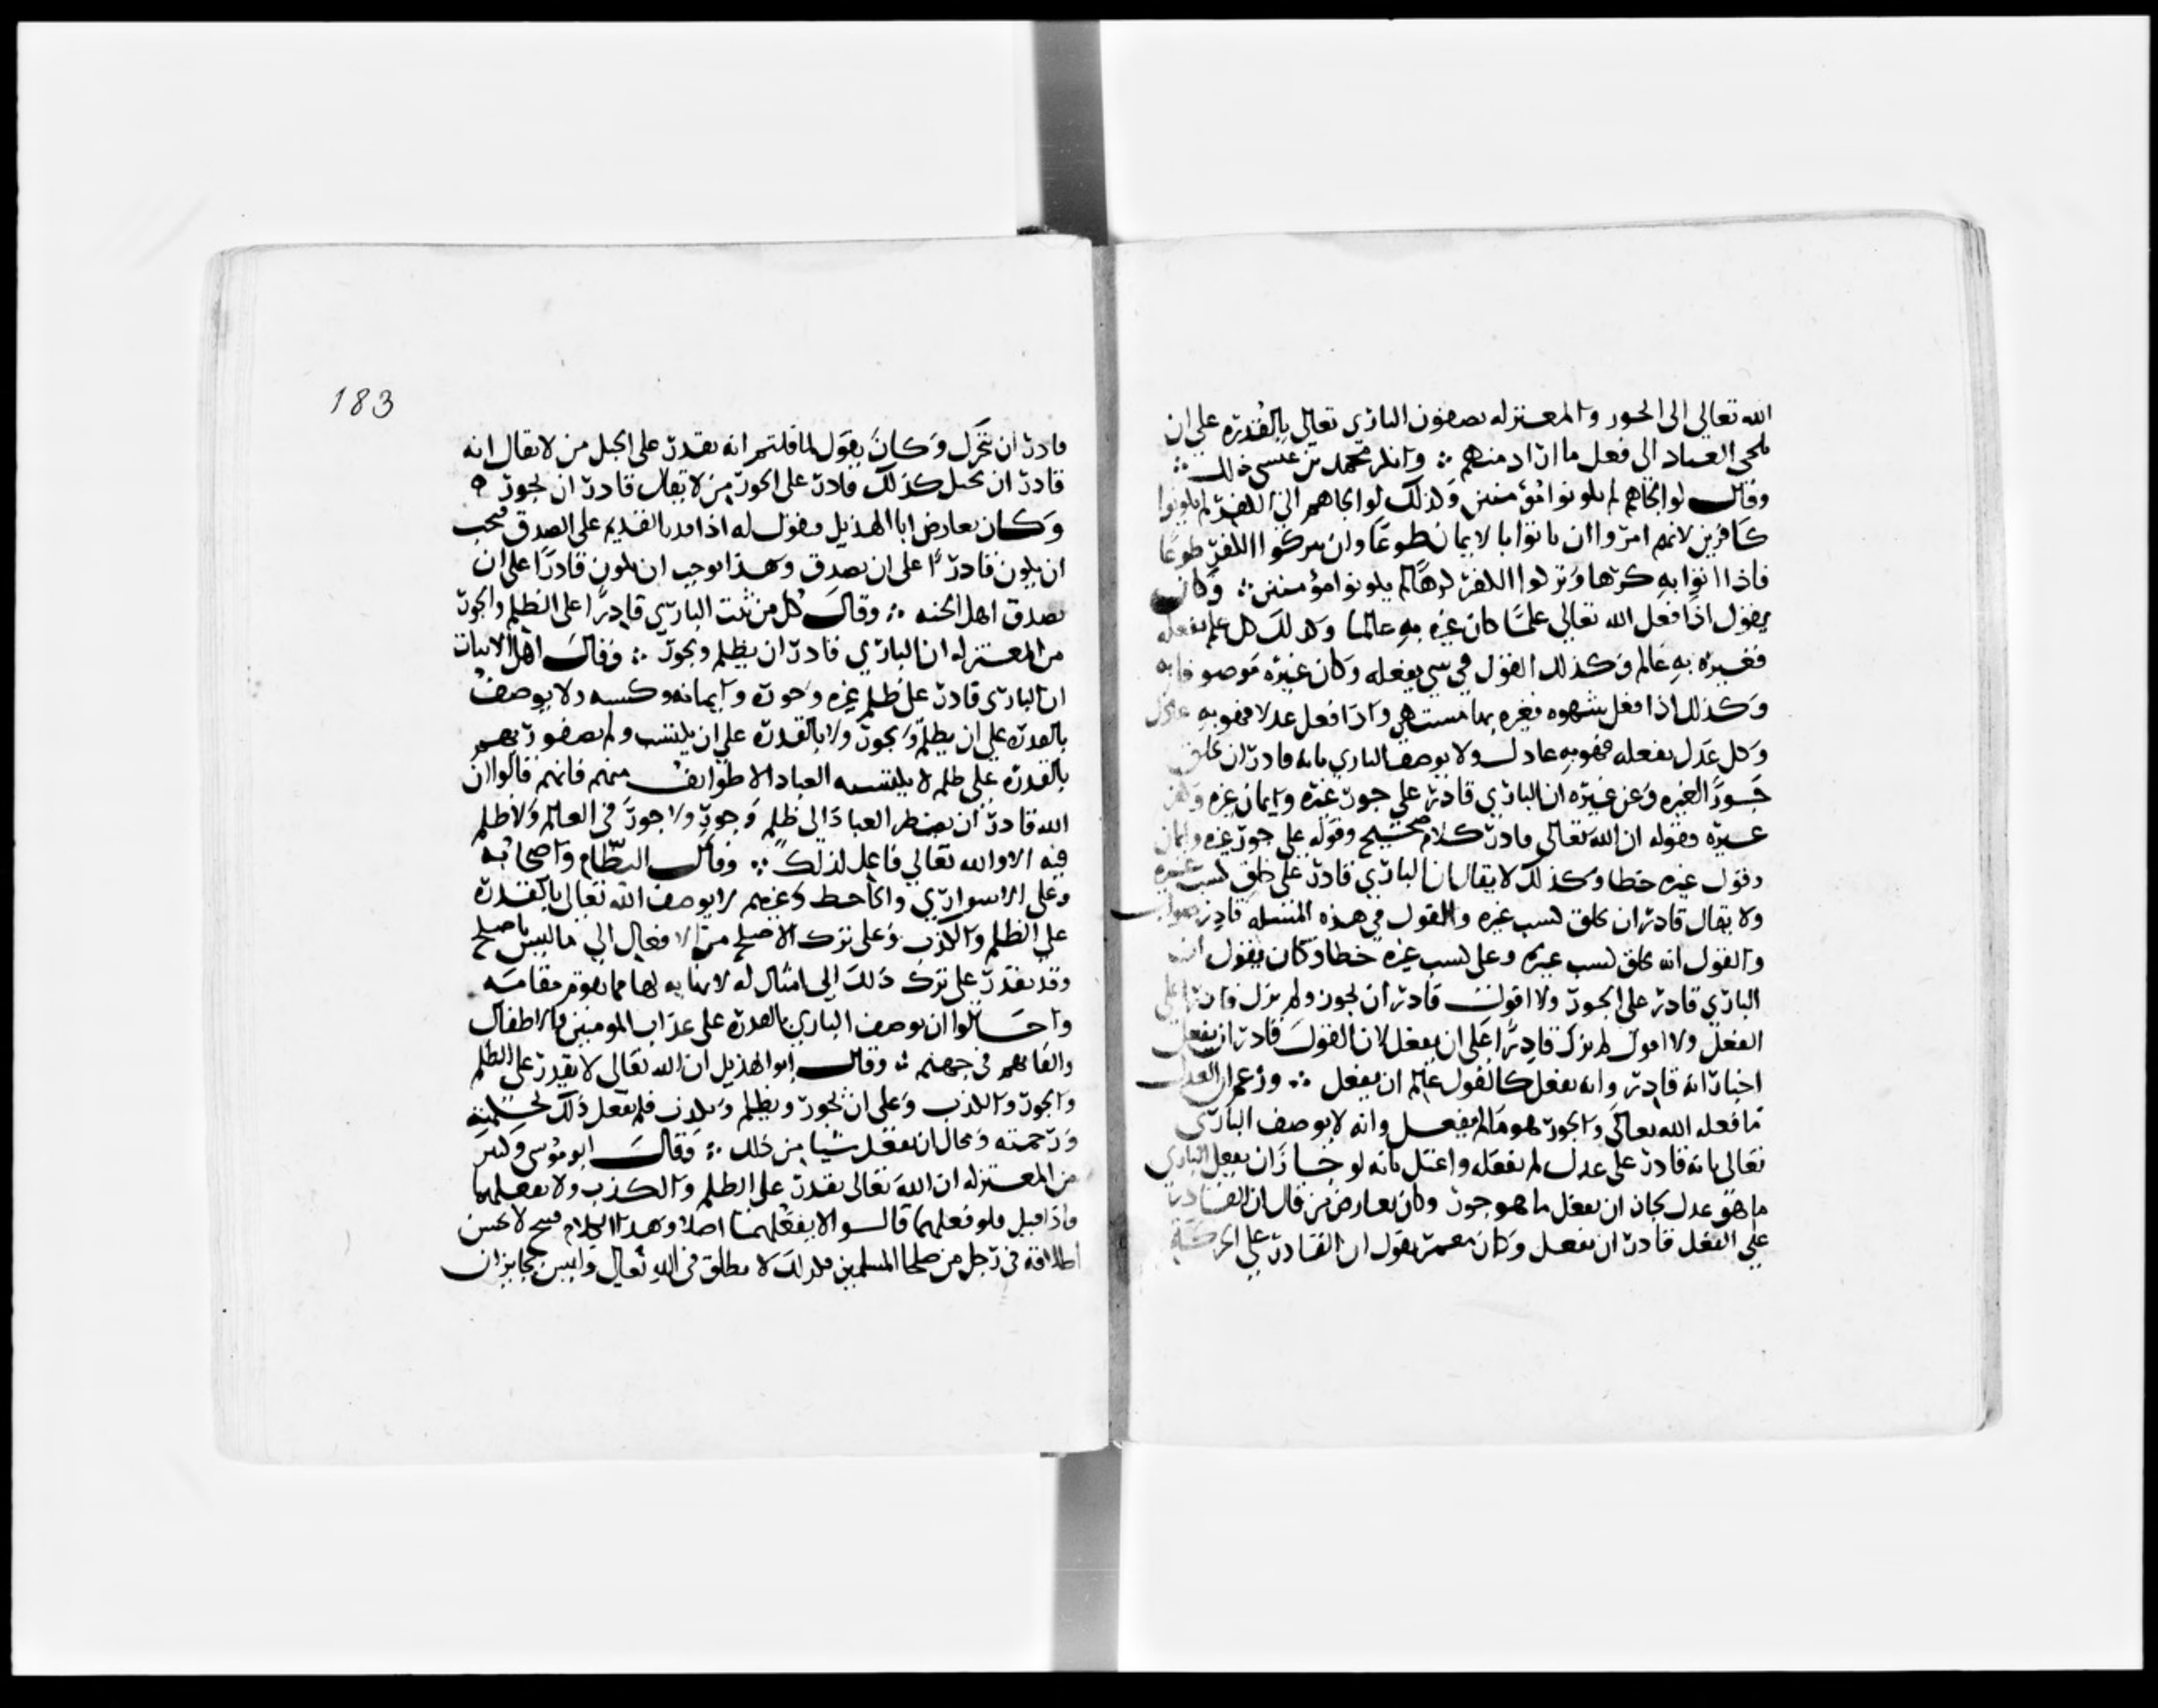 الله تعالى الى الجور والمعتزله يصفون الباري تعالى بالقدره على ان
يلجي العباد الى فعل ما اراد منهم ∴ وانكر محمد بن عيسى ذلك ∴
وقال لو الجاهم لم يكونوا مؤمنين وكذلك لو الجاهم الى الكفر لم يكونوا
كافرين لانهم امروا ان ياتوا بالايمان طوعا وان يتركوا الكفر طوعا
فاذا اتوا به كرها وتركوا الكفر كرها لم يكونوا مؤمنين ∴ وكان
يقول اذا فعل الله تعالى علما كان غيره به عالما وكذلك كل علم يفعله
فغيره به عالم وكذلك القول في شي يفعله وكان غيره موصوفا به
وكذلك اذا فعل شهوه فغيره بها مشتهي واذا فعل عدلا فهو به عادل
وكل عدل يفعله فهو به عادل ولا يوصف الباري بانه قادر ان يخلق
جورا لغيره وعن غيره ان الباري قادر على جور غيره وايمان غيره وكفر
غيره وقوله ان الله تعالى قادر كلام صحيح وقوله على جور غيره وايمان
وقول غيره خطا وكذلك لا يقال ان الباري قادر على خلق كسب غيره
ولا يقال قادر ان يخلق كسب غيره والقول في هذه المسله قادر صواب
والقول انه يخلق كسب غيره وعلى كسب غيره خطا وكان يقول ان
الباري قادر على الجور ولا اقول قادر ان يجور ولم يزل قادرا على
الفعل ولا اقول لم يزل قادرا على ان يفعل لان القول قادر ان يفعل
اخبار انه قادر وانه يفعل كالقول عالم ان يفعل ∴ وزعم ان العدل
ما فعله الله تعالى والجور هو ما لم يفعل وانه لا يوصف الباري
تعالى بانه قادر على عدل لم يفعله واعتل بانه لو جاز ان يفعل الباري
ما هو عدل لجاز ان يفعل ما هو جور وكان يعارض من قال ان القادر
على الفعل قادر ان يفعل وكان معمر يقول ان القادر على الحركة
183
قادر ان يتحرك وكان يقول لما قلتم انه يقدر على الحبل من لا يقال انه
قادر ان يحبل كذلك قادر على الجور من لا يقال قادر ان يجور ه
وكان يعارض ابا الهذيل ويقول له اذا قدر القديم على الصدق فيجب
ان يكون قادرا على ان يصدق وهذا يوجب ان يكون قادرا على ان
يصدق اهل الجنه ∴ وقال كل من ثبت الباري قادرا على الظلم والجور
من المعتزله ان الباري قادر ان يظلم ويجور ∴ وقال اهل الاثبات
ان الباري قادر على ظلم غيره وجوره وايمانه وكسبه ولا يوصف
بالقدره على ان يظلم ويجور ولا بالقدرة على ان يكتسب ولم يصفوا ربهم
بالقدرة على ظلم لا يكتسبه العباد الا طوايف منهم فانهم قالوا ان
الله قادر ان يضطر العباد الى ظلم وجور ولا جور في العالم ولا ظلم
فيه الا والله تعالى فاعل لذلك ∴ وقال النظام واصحابه
وعلي الاسواري والجاحظ وغيرهم لا يوصف الله تعالى بالقدرة
على الظلم والكذب وعلى ترك الاصلح من الافعال الى ما ليس باصلح
وقد يقدر على ترك ذلك الى امثال له لا نهايه لها مما يقوم مقامه
واحالوا ان يوصف الباري بالقدرة على عذاب المومنين والاطفال
والقايهم في جهنم ∴ وقال ابو الهذيل ان الله تعالى لا يقدر على الظلم
والجور والكذب وعلى ان يجور ويظلم ويكذب فلم يفعل ذلك لحكمته
ورحمته ومحال ان يفعل شيا من ذلك ∴ وقال ابو موسى وكثير
من المعتزله ان الله تعالى يقدر على الظلم والكذب ولا يفعلهما
فاذا قيل فلو فعلهما قالوا لا يفعلهما اصلا وهذا الكلام قبيح لا يحسن
اطلاقه في رجل من صلحا المسلمين فكذلك لا يطلق في الله تعالى وليس بجايز ان